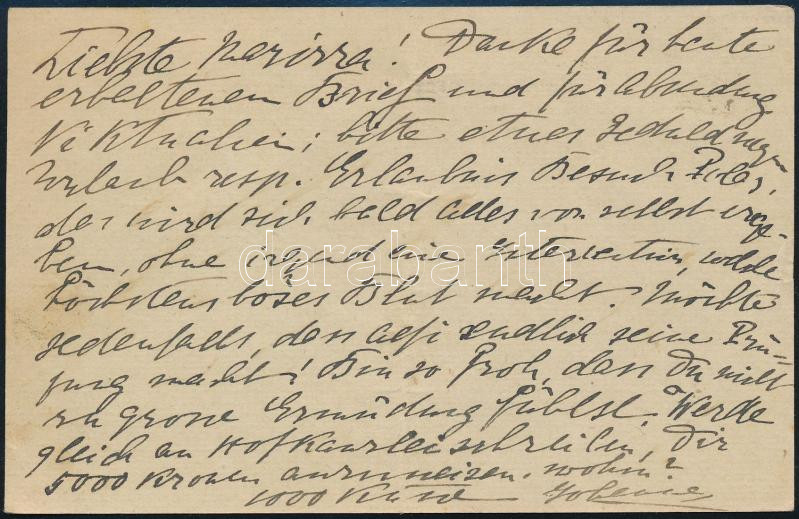 Liebste Marizza! Danke für heute
erhaltenen Brief und für Absendung
Viktualien; bitte etwas Geduld wegen
Urlaub resp. Erlaubnis Besuch
das wird sich bald alles von selbst erge-
ben, ohne irgend eine Intervention, welche
höchstens böses Blut macht. Möchte
jedenfalls, dass endlich seine Prü-
fung macht! Bin so froh, dass Du nicht
zu grosse Ermüdung fühlst. Werde
gleich an Hofkanzlei schreiben, Dir
5000 Kronen anzuweisen. wohin?
1000 Küsse
darabanth